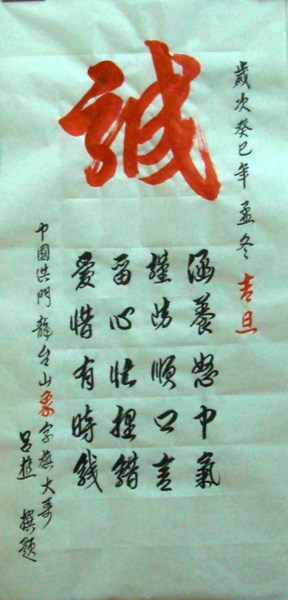 歲次癸巳年孟冬吉旦
誠
涵養怒中氣
謹防順口言
留心忙裡錯
愛惜有時錢
中國洪門龍台山象字旗大哥
呂 撰題